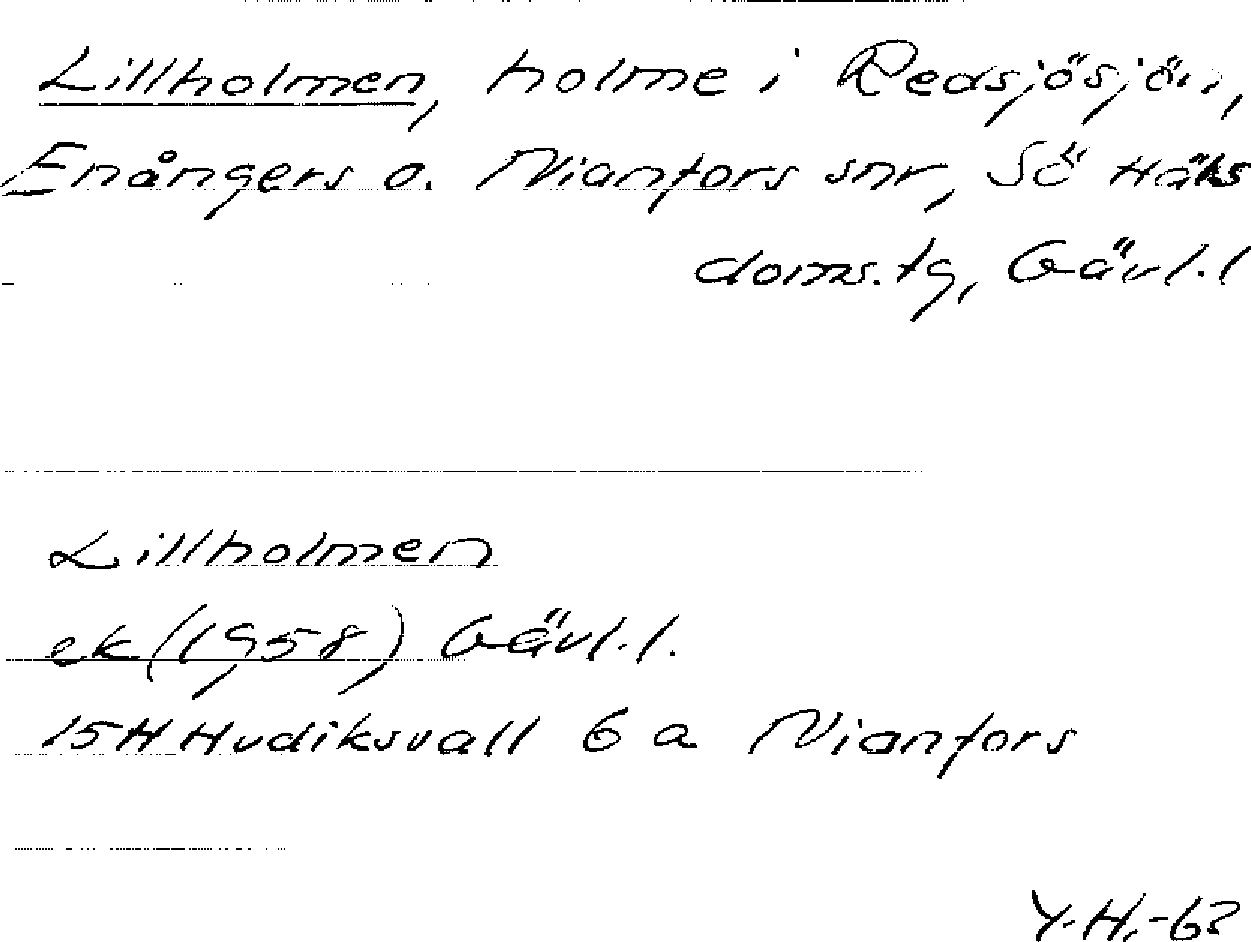 Lillholmen, holme i Redsjösjön,
Enångers o. Nianfors snr, Sö Häls
doms.tg, Gävl.l
Lillholmen
ek (1958) Gävl.l.
15H Hudiksvall 6 a Nianfors
Y.H.-63